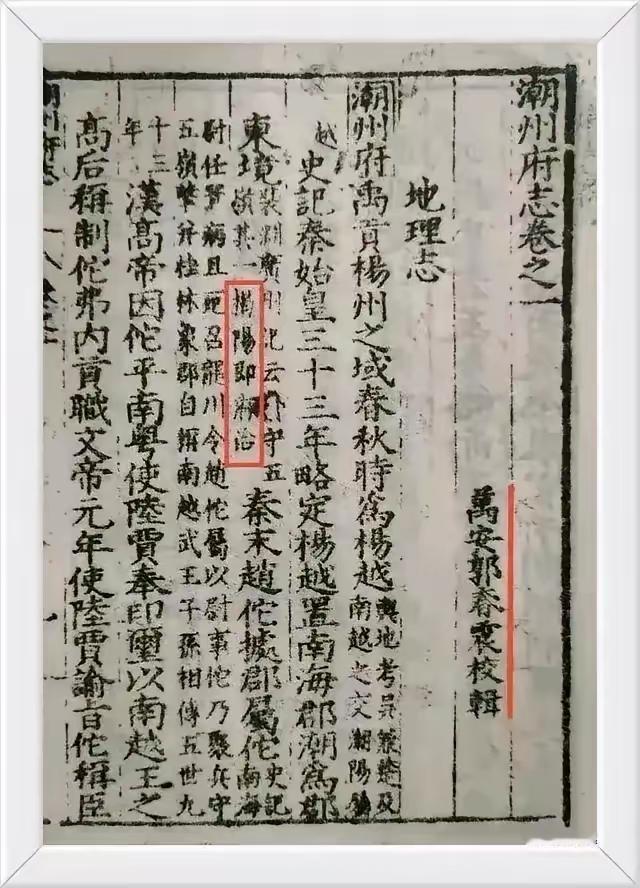 潮州府志卷之一
萬安郭春震校輯
地理志
潮州府禹貢楊州之域春秋時爲楊越
輿地考吳兼楚及
南越之交潮陽屬
越
史記秦始皇三十三年略定楊越置南海郡潮爲郡
東境
裴淵廣州記云守五
嶺其一揭陽即縣治
秦末趙佗據郡屬佗
史記
南海
尉任囂病且死召龍川令趙佗屬以尉事佗乃聚兵守
五嶺擊并桂林象郡自南越武王子孫相傳五世九
十三
年
漢高帝因佗平南粤使陸賈奉印璽以南越王之
高后稱制佗弗内貢職文帝元年使陸賈諭旨佗稱臣
潮州府志